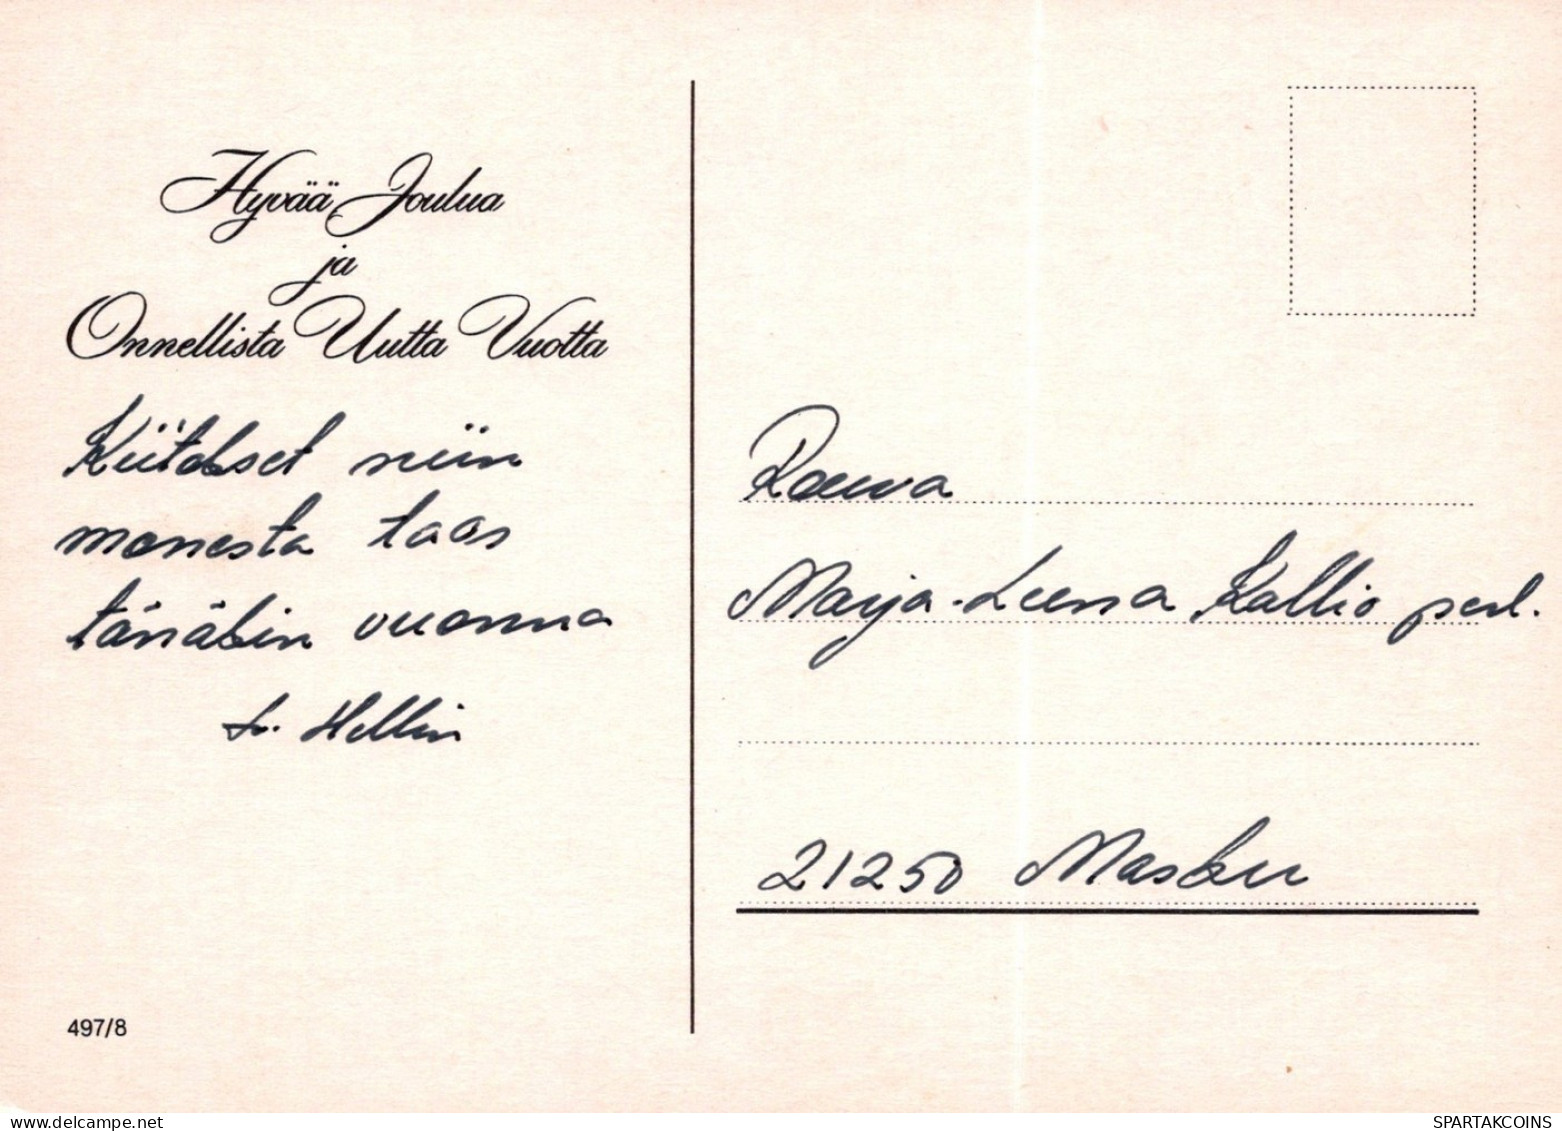 Hyvää Joulua
ja
Onnellista Uutta Vuotta
Kiitokset niin
monesta taas
tänäkin vuonna
t. Hellin
497/8
Rouva
Marja-Leena Kallio perh.
21250 Masku
SPARTAKCOINS